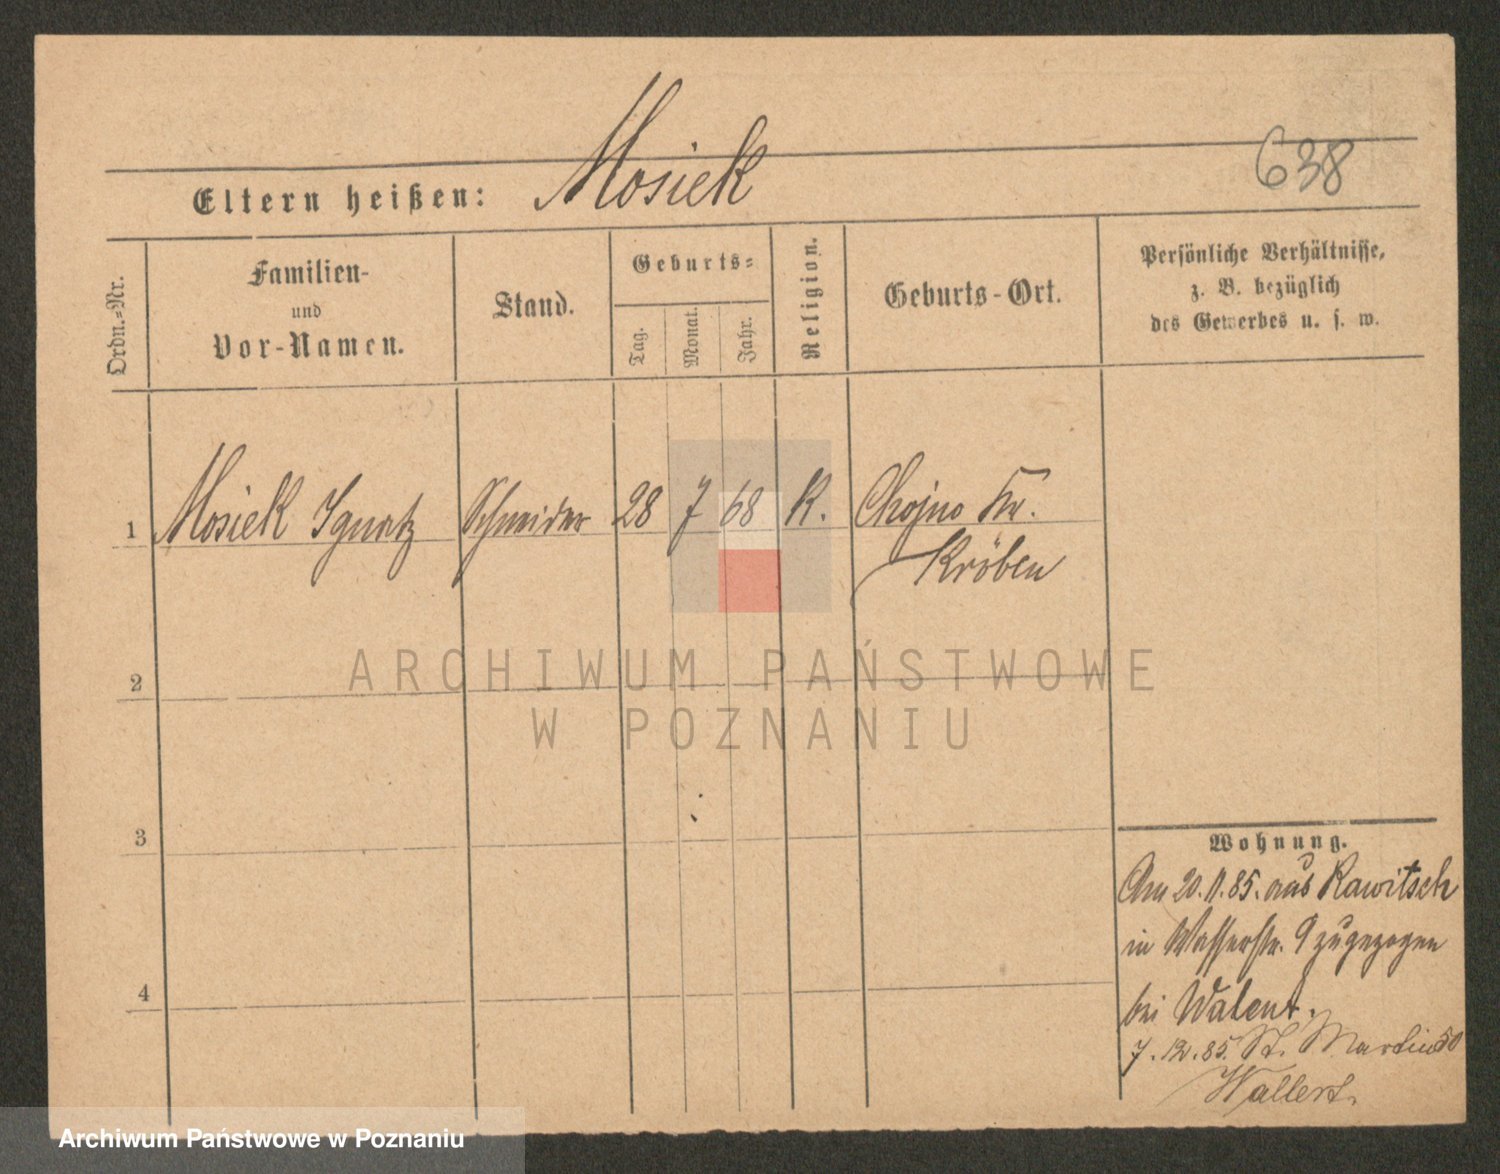 638
Eltern heißen: Mosiek
Ordn.-Nr.
Familien-
und
Vor-Namen.
Stand.
Geburts-
Tag.
Monat.
Jahr.
Religion.
Geburts-Ort.
Persönliche Verhältnisse,
z. B. bezüglich
des Gewerbes u. s. w.
1 Mosiek Ignatz Schneider 28 7 68 K. Chojno Kr.
Kröben
2
3
4
Wohnung.
Am 20.11.85. aus Rawitsch
in Wasserstr. 9 zugezogen
bei Walent.
7.12.85. St. Martin 50
Wallert.
ARCHIWUM PAŃSTWOWE
W POZNANIU
Archiwum Państwowe w Poznaniu